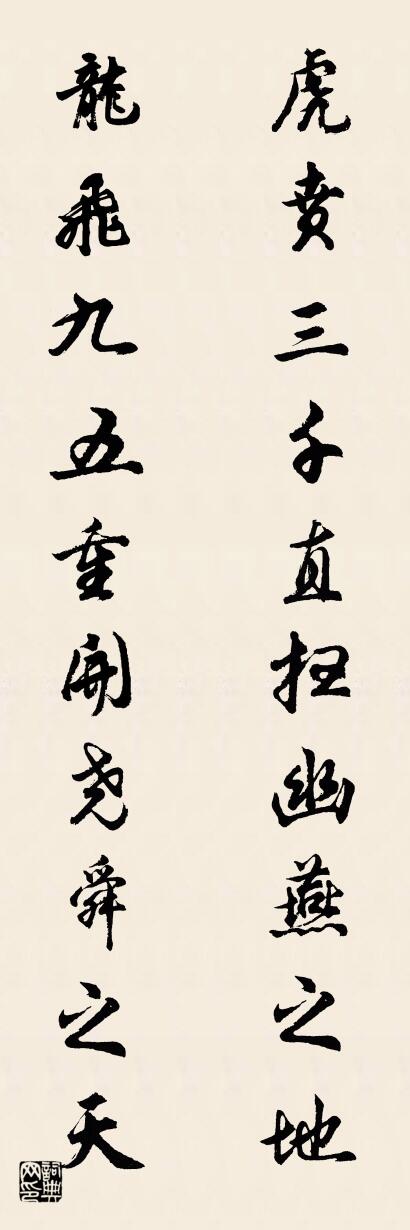 虎賁三千直掃幽燕之地
龍飛九五重開堯舜之天
詞典網印